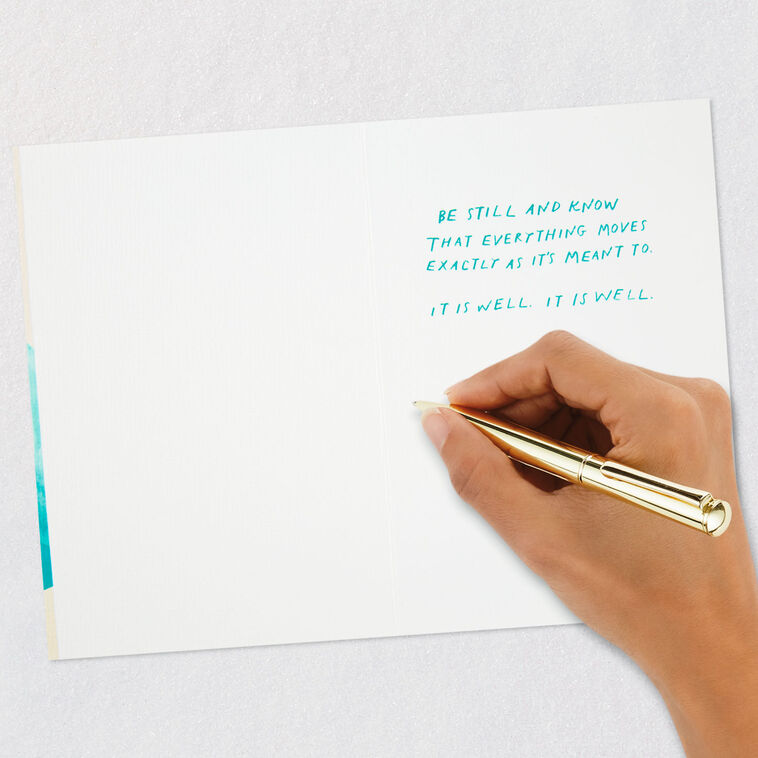 BE STILL AND KNOW
THAT EVERYTHING MOVES
EXACTLY AS IT'S MEANT TO.
IT IS WELL. IT IS WELL.